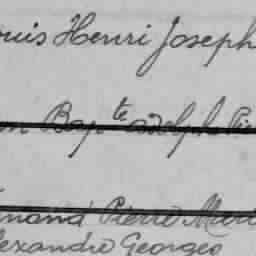 ouis Henri Joseph
n Bapte adolphe Pie
nand Pierre Mari
lexandre Georges